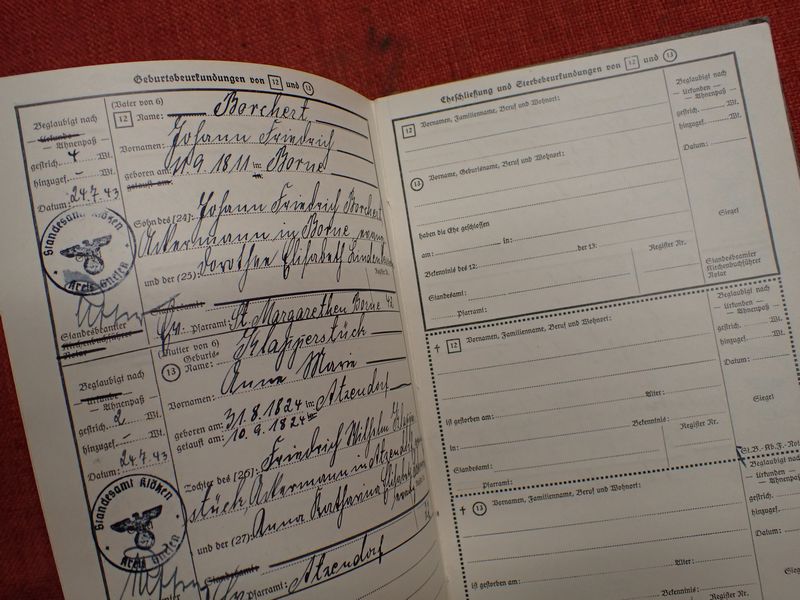 Geburtsbeurkundungen von 12 und 13
Beglaubigt nach
Urkunde
Ahnenpaß
gestrich. 4 Wt.
hinzugef. - Wt.
Datum: 24.7.43
Standesamt Klöken
Kreis Gnesen
Standesbeamter
Kirchenbuchführer
Notar
(Vater von 6)
12 Name: Borchert
Vornamen: Johann Friedrich
geboren am: 11.9.1811 in: Borne
getauft am:
Sohn des (24): Johann Friedrich Borchert
Ackermann in Borne, evang.
und der (25): Dorothee Elisabeth Linden
Standesamt
Ev. Pfarramt: St. Margarethen Borne 42
Beglaubigt nach
Urkunde
Ahnenpaß
gestrich. 2 Wt.
hinzugef. - Wt.
Datum: 24.7.43
Standesamt Klöken
Kreis Gnesen
(Mutter von 6)
Geburts-
13 Name: Klapperstück
Vornamen: Anne Marie
geboren am: 31.8.1824 in: Atzendorf
getauft am: 10.9.1824
Tochter des (26): Friedrich Wilhelm Klapper
stück, Ackermann in Atzendorf
und der (27): Anna Katharina Elisabeth
Standesamt
Pfarramt: Atzendorf
Eheschließung und Sterbebeurkundungen von 12 und 13
12 Vornamen, Familienname, Beruf und Wohnort:
13 Vorname, Geburtsname, Beruf und Wohnort:
haben die Ehe geschlossen
am: in: der 13:
Bekenntnis des 12: Register Nr.
Standesamt:
Pfarramt:
Beglaubigt nach
— Urkunden —
— Ahnenpaß —
gestrich. Wt.
hinzugef. Wt.
Datum:
Siegel
Standesbeamter
Kirchenbuchführer
Notar
† 12 Vornamen, Familienname, Beruf und Wohnort:
ist gestorben am: Alter:
in: Bekenntnis: Register Nr.
Standesamt:
Pfarramt:
Beglaubigt nach
— Urkunden —
— Ahnenpaß —
gestrich. Wt.
hinzugef. Wt.
Datum:
Siegel
St.B.-Kb.F.-Not.
† 13 Vornamen, Familienname, Beruf und Wohnort:
ist gestorben am: Alter:
Bekenntnis: Register Nr.
Beglaubigt nach
— Urkunden —
— Ahnenpaß —
gestrich.
hinzugef.
Datum:
Siegel